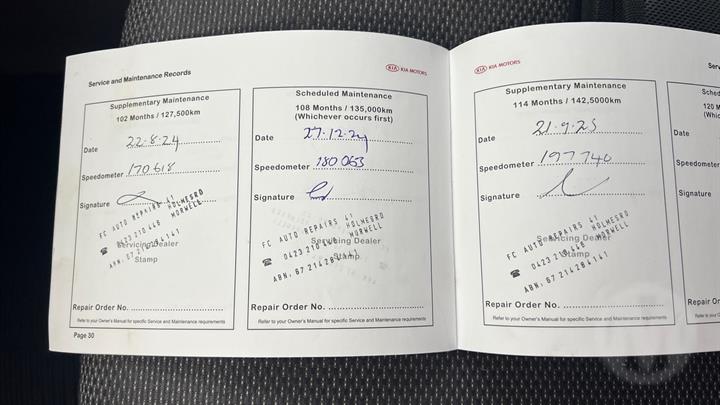 Service and Maintenance Records
KIA KIA MOTORS
Supplementary Maintenance
102 Months / 127,500km
Date 22.8.24
Speedometer 170618
Signature
FC AUTO REPAIRS 41 HOLMESRD
☎ 0423 210 448 MORWELL
ABN. 67 214 284 141
Servicing Dealer
Stamp
Repair Order No.
Refer to your Owner's Manual for specific Service and Maintenance requirements
Page 30
Scheduled Maintenance
108 Months / 135,000km
(Whichever occurs first)
Date 27.12.24
Speedometer 180 063
Signature
FC AUTO REPAIRS 41 HOLMESRD
☎ 0423 210 448 MORWELL
ABN. 67 214 284 141
Servicing Dealer
Stamp
Repair Order No.
Refer to your Owner's Manual for specific Service and Maintenance requirements
KIA KIA MOTORS
Supplementary Maintenance
114 Months / 142,5000km
Date 21.9.25
Speedometer 197740
Signature
FC AUTO REPAIRS 41 HOLMESRD
☎ 0423 210 448 MORWELL
ABN. 67 214 284 141
Servicing Dealer
Stamp
Repair Order No.
Refer to your Owner's Manual for specific Service and Maintenance requirements
Serv
Sched
120 M
(Whic
Date
Speedometer
Signature
Repair Or